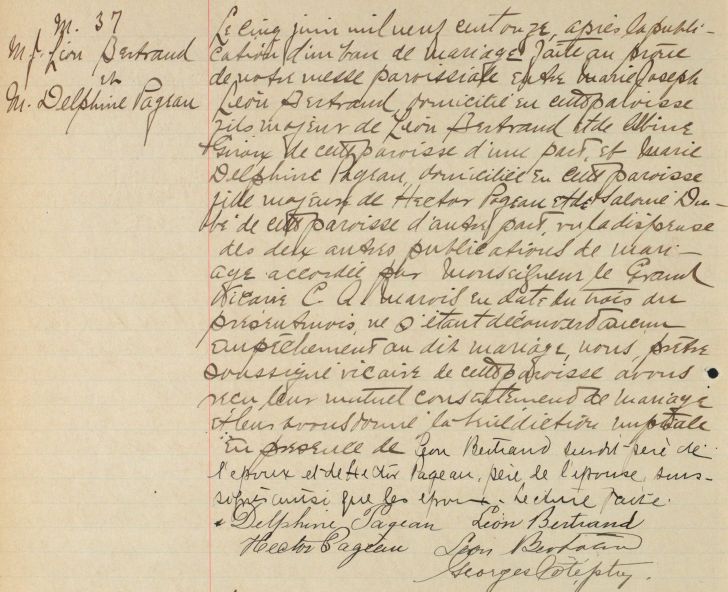 M. 37
M. J. Léon Bertrand
et
M. Delphine Pageau
Le cinq juin mil neuf cent onze, après la publi-
cation d'un ban de mariage faite au prône
de notre messe paroissiale entre Marie Joseph
Léon Bertrand, domicilié en cette paroisse
fils majeur de Léon Bertrand et de Albine
Giroux de cette paroisse d'une part, et Marie
Delphine Pageau, domiciliée en cette paroisse
fille majeure de Hector Pageau et de Salomé Du-
bé de cette paroisse d'autre part, vu la dispense
des deux autres publications de mari-
age accordée par Monseigneur le Grand
Vicaire C. A. Marois en date du trois du
présent mois, ne s'étant découvert aucun
empêchement au dit mariage, nous, prêtre
soussigné vicaire de cette paroisse avons
reçu leur mutuel consentement de mariage
et leur avons donné la bénédiction nuptiale
en présence de Léon Bertrand susdit père de
l'époux et de Hector Pageau, père de l'épouse, sous-
signés ainsi que les époux. Lecture faite.
Delphine Pageau Léon Bertrand
Hector Pageau Léon Bertrand
Georges Côté, ptre.